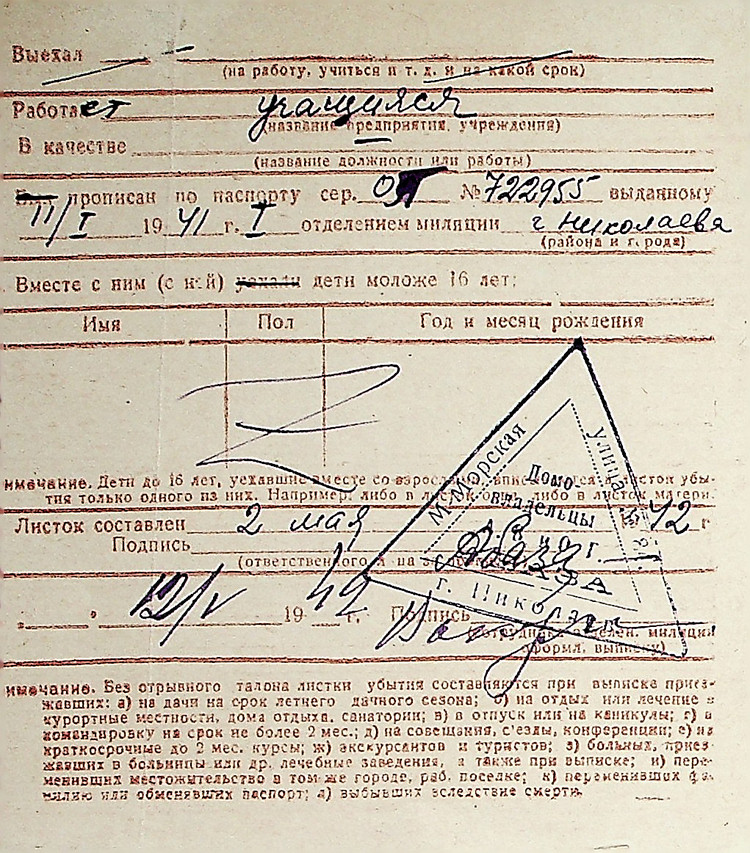 Выехал
(на работу, учиться и т. д. и на какой срок)
Работает учащийся
(название предприятия, учреждения)
В качестве
(название должности или работы)
прописан по паспорту сер. № 722955 выданному
11/I 1941 г. I отделением милиции г Николаева
(района и города)
Вместе с ним (с ней) уехали дети моложе 16 лет:
Имя Пол Год и месяц рождения
имечание. Дети до 16 лет, уехавшие вместе со взрослыми, вписываются в листок убы-
тия только одного из них. Например, либо в листок отца, либо в листок матери.
Листок составлен 2 мая 42 г
Подпись
(ответственного за
12/V 1942 г. Подпись
(сотрудника отделен. милиции
оформл. выписку)
М-Морская
улица №
Домо-
владельцы
г. Николаев
имечание. Без отрывного талона листки убытия составляются при выписке приез-
жавших: а) на дачи на срок летнего дачного сезона; б) на отдых или лечение в
курортные местности, дома отдыха, санатории; в) в отпуск или на каникулы; г) в
командировку на срок не более 2 мес.; д) на совещания, с'езды, конференции; е) на
краткосрочные до 2 мес. курсы; ж) экскурсантов и туристов; з) больных, приез-
жавших в больницы или др. лечебные заведения, а также при выписке; и) пере-
менивших местожительство в том же городе, раб. поселке; к) переменивших фа-
милию или обменявших паспорт; л) выбывших вследствие смерти.